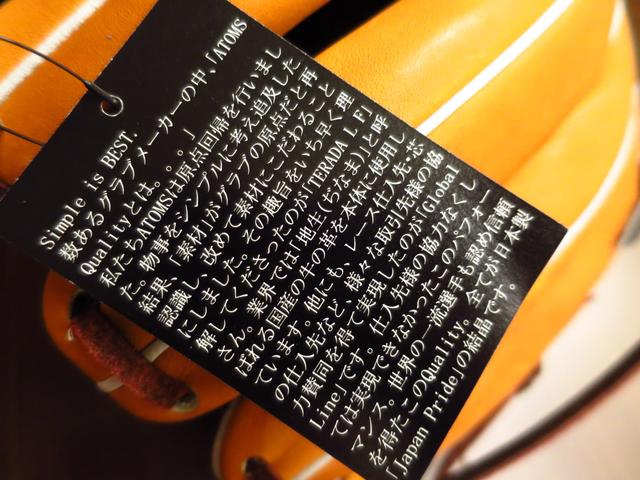 Simple is BEST.
数あるグラブメーカーの中、「ATOMS
Qualityとは。。。」
私たちATOMSは原点回帰を行いまし
た。物事をシンプルに考え追及した
結果、「素材」がグラブの原点だと再
認識し、改めて素材にこだわること
にしました。その趣旨をいち早く理
解してくださったのが「TERADA LF」
さん。業界では「地生(ぢなま)」と呼
ばれる国産の牛の革を本体に使用し
ています。他にも、レース仕入先・芯
の仕入先など、様々な取引先様の協
力賛同を得て実現したのが「Global
Line」です。仕入先様の協力なくし
ては実現できなかったこのパフォー
マンス。世界の一流選手も認め信頼
を得たこのQuality。全てが日本製
「Japan Pride」の結晶です。